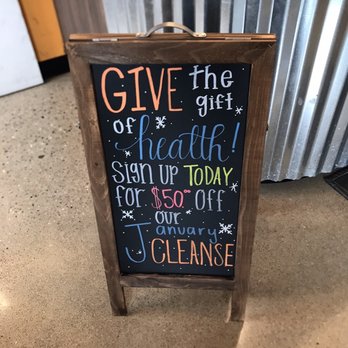 GIVE the gift
of health!
sign up TODAY
for $50.00 off
our
January
CLEANSE